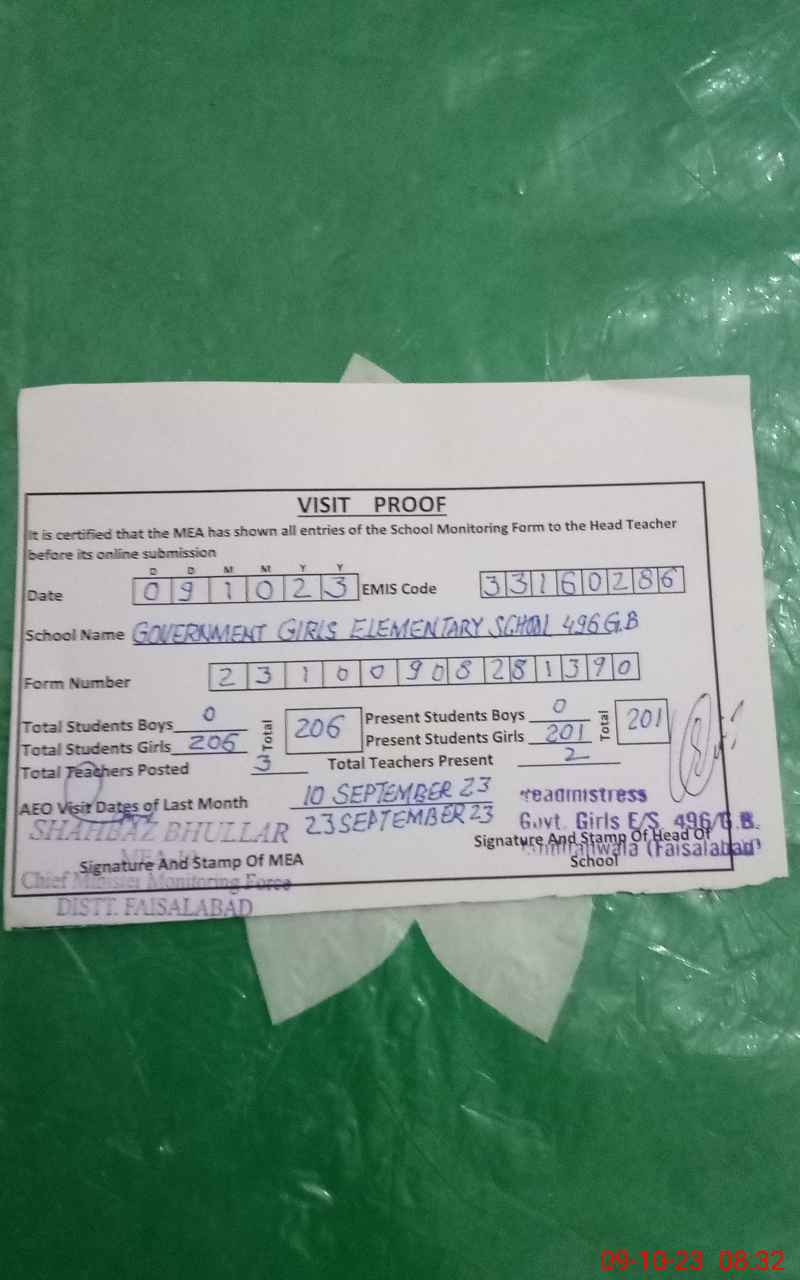 VISIT PROOF
It is certified that the MEA has shown all entries of the School Monitoring Form to the Head Teacher
before its online submission
D D M M Y Y
Date 0 9 1 0 2 3 EMIS Code 3 3 1 6 0 2 8 6
School Name GOVERNMENT GIRLS ELEMENTARY SCHOOL 496 G.B
Form Number 2 3 1 0 0 9 0 8 2 8 1 3 9 0
Total Students Boys 0 Total 206 Present Students Boys 0 Total 201
Total Students Girls 206 Present Students Girls 201
Total Teachers Posted 3 Total Teachers Present 2
AEO Visit Dates of Last Month 10 SEPTEMBER 23
23 SEPTEMBER 23
SHAHBAZ BHULLAR
Signature And Stamp Of MEA
Chief Minister Monitoring Force
DISTT. FAISALABAD
eadmistress
Govt. Girls E/S. 496/G.B.
Signature And Stamp Of Head Of
School
(Faisalabad)
09-10-23 08.32